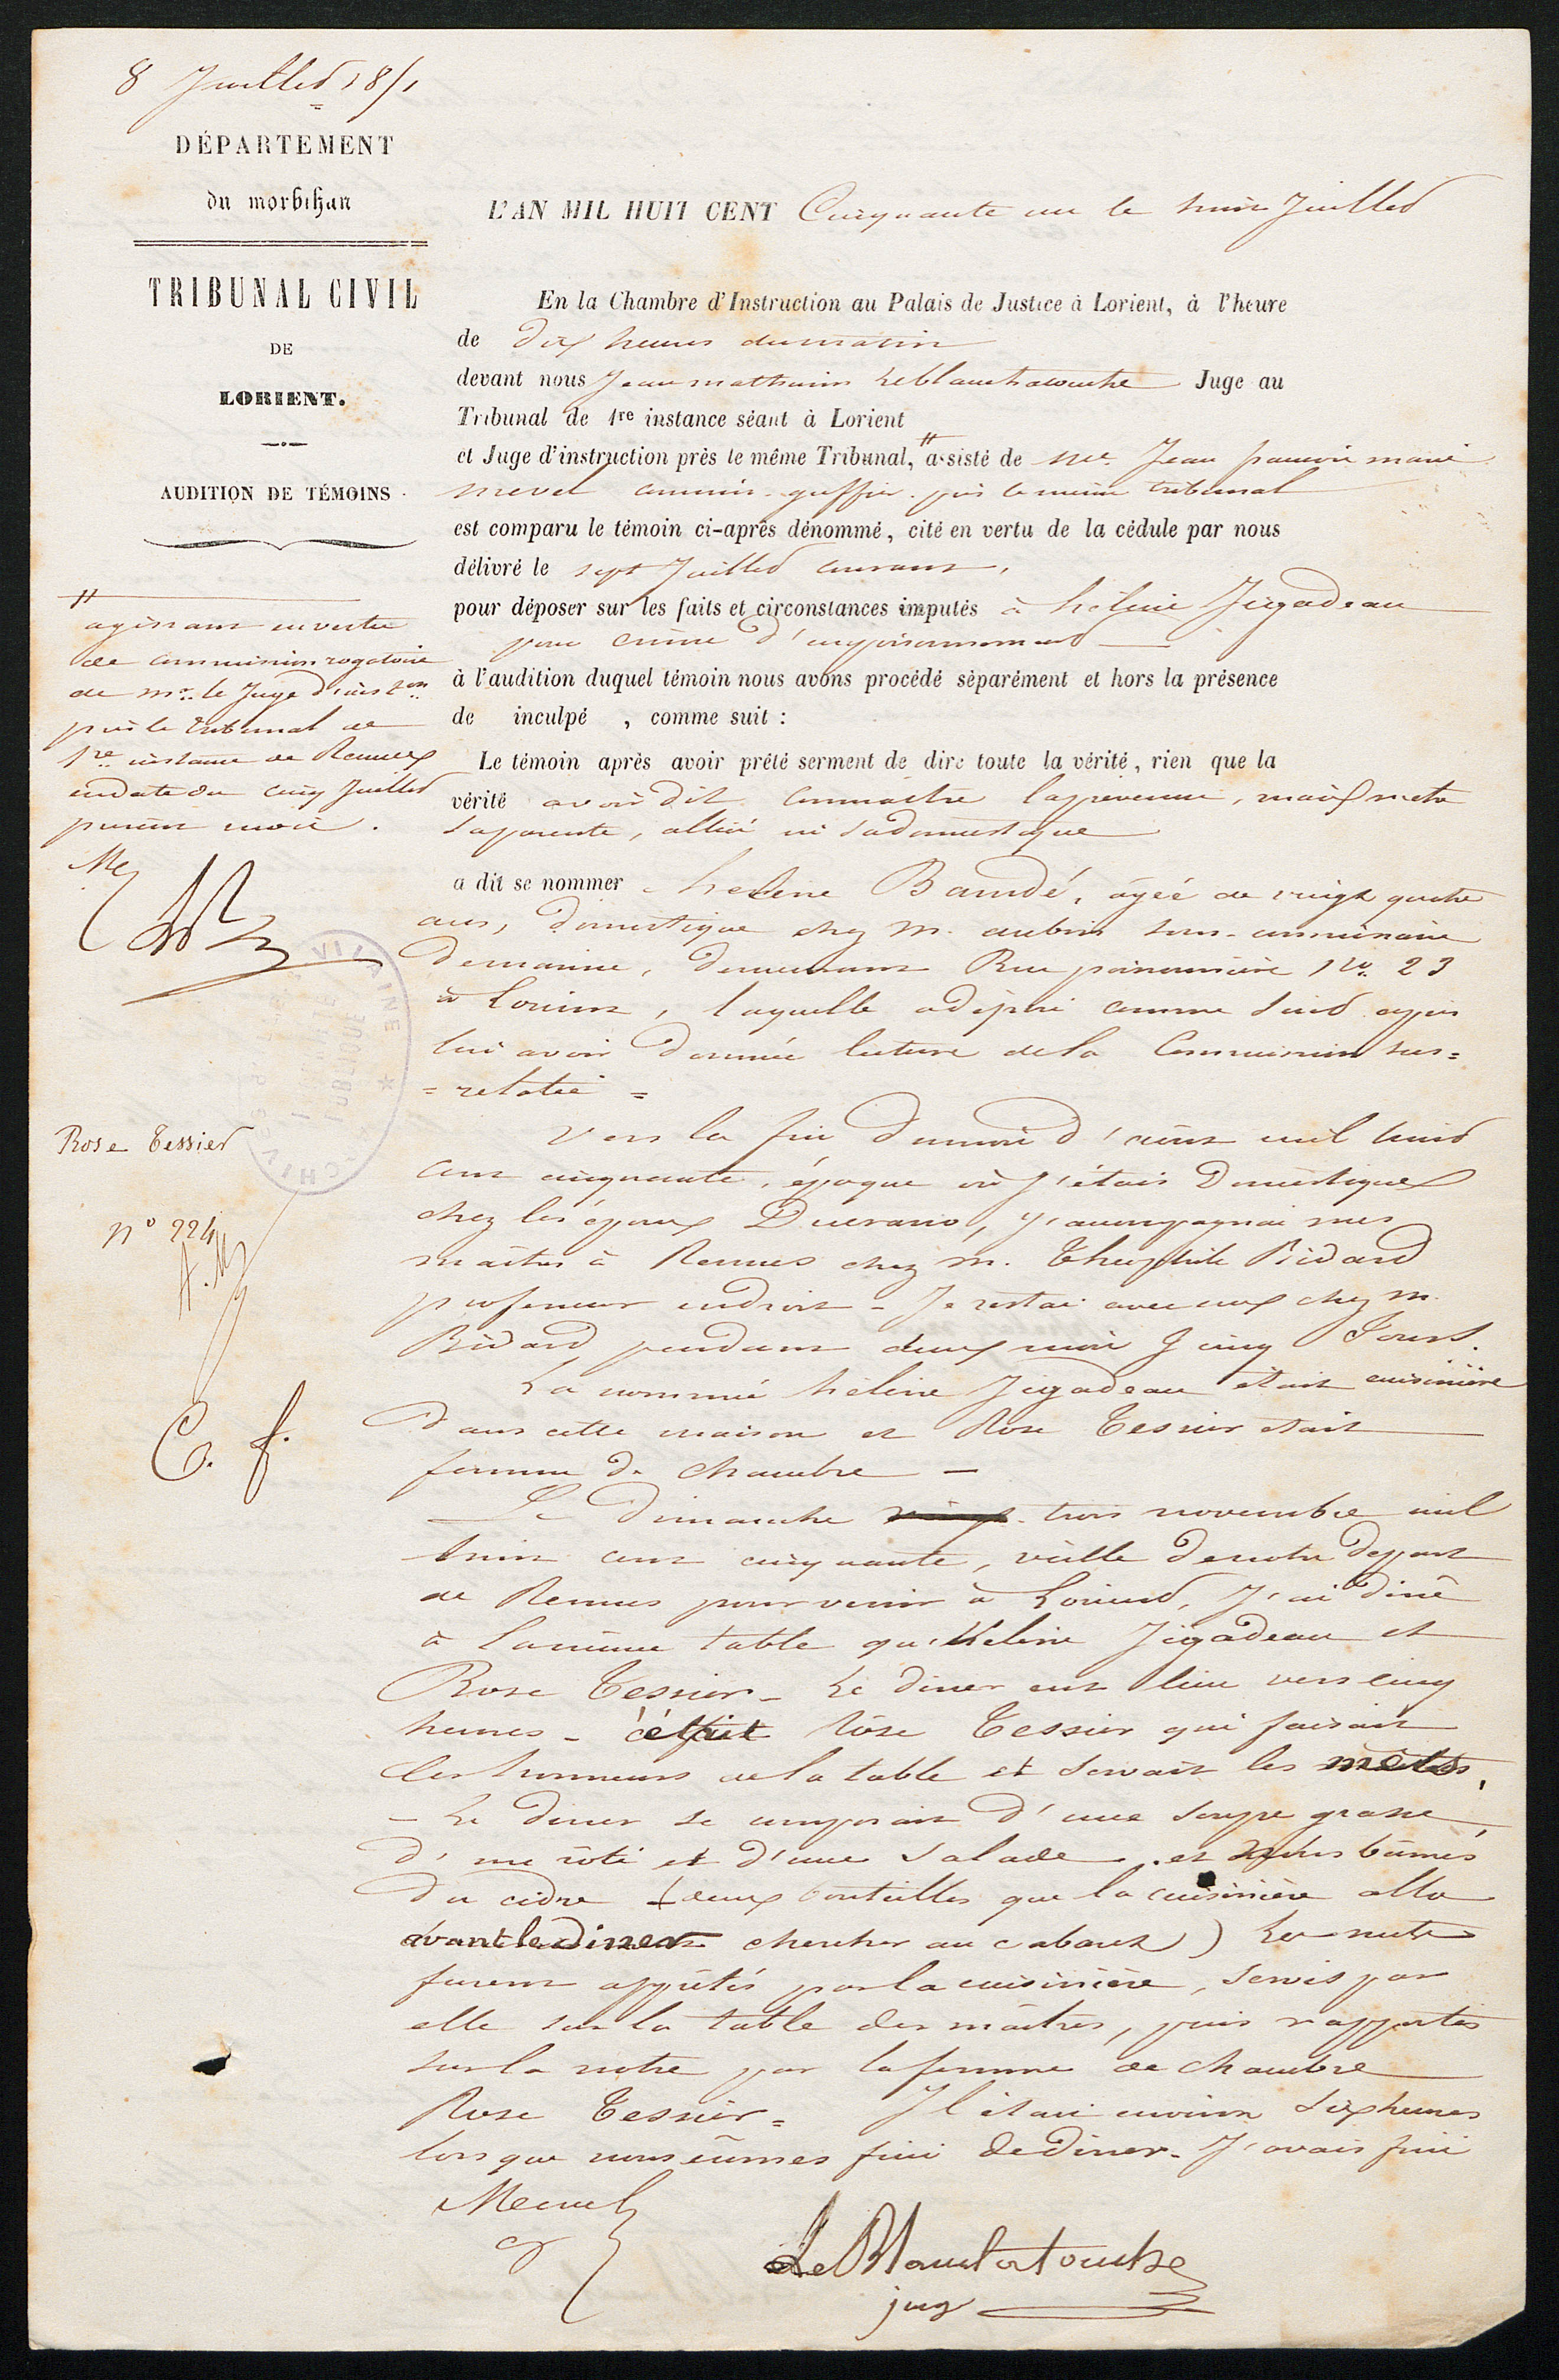 8 Juillet 1851
DÉPARTEMENT
du morbihan
TRIBUNAL CIVIL
DE
LORIENT.
AUDITION DE TÉMOINS.
L'AN MIL HUIT CENT Cinquante un le huit Juillet
En la Chambre d'Instruction au Palais de Justice à Lorient, à l'heure
de dix heures du matin
devant nous Jean mathurin Leblanchatouche Juge au
Tribunal de 1re instance séant à Lorient
et Juge d'instruction près le même Tribunal, assisté de me Jean françois marie
mevel commis-greffier près le même tribunal
est comparu le témoin ci-après dénommé, cité en vertu de la cédule par nous
délivré le sept Juillet courant,
pour déposer sur les faits et circonstances imputés à hélène Jégadeau
pour crime d'empoisonnement
à l'audition duquel témoin nous avons procédé séparément et hors la présence
de inculpé , comme suit :
Le témoin après avoir prêté serment de dire toute la vérité, rien que la
vérité avoir dit connaitre la prévenue, mais n'etre
sa parente, alliée ni sa domestique
a dit se nommer helène Bamdé, âgée de vingt quatre
ans, domestique chez m. aubin sous-commissaire
de marine, demeurant Rue poissonnière No. 23
à Lorient, laquelle a déposé comme suit après
lui avoir donnée lecture de la Commission sus=
=relatée=
//
agissant en vertu
de commission rogatoire
de mr. le Juge d'inston
près le tribunal de
1re instance de Rennes
en date du cinq Juillet
présent mois.
Rose Tessier
n° 224
C. f.
Vers la fin du mois d'août mil huit
cent cinquante, époque où j'étais Domestique
chez les époux Ducrano, j'accompagnai mes
maîtres à Rennes chez m. Théophile Bidard
professeur en droit - Je restai avec eux chez m.
Bidard pendant deux mois & cinq Jours.
La nommée hélène Jégadeau était cuisinière
dans cette maison et Rose Tessier était
femme de chambre —
Le Dimanche vingt trois novembre mil
huit cent cinquante, veille de notre départ
de Rennes pour venir à Lorient, J'ai diné
à la même table qu'hélène Jégadeau et
Rose Tessier - Le diner eut lieu vers cinq
heures - c'était Rose Tessier qui faisait
les honneurs de la table et servait les mets,
- Le diner se composait d'une soupe grasse,
d'un rôti et d'une salade. et nous bûmes
du cidre (deux bouteilles que la cuisinière alla
avant le diner chercher au cabaret) Les mets
furent apprêtés par la cuisinière, servis par
elle sur la table des maîtres, puis rapportés
sur la notre par la femme de chambre
Rose Tessier= Il était environ six heures
lorsque nous eûmes fini de diner - J'avais fini
Mevel
Le Blanchatouche
juge